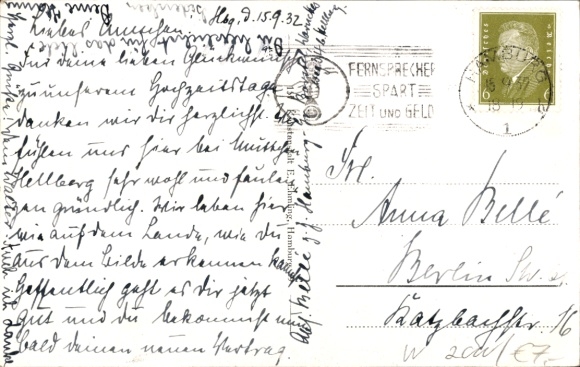 Hbg, d. 15.9.32
Liebes Ännchen
Für deine lieben Glückwünsche
zu unserem Hochzeitstage
danken wir dir herzlichst. Wir
fühlen uns hier bei Muttchen
Hellberg sehr wohl und faulen-
zen gründlich. Wir leben hier
wie auf dem Lande, wie du
aus dem Bilde erkennen kannst
Hoffentlich geht es dir jetzt
gut und du bekommst nun
bald deinen neuen Vertrag.
FERNSPRECHEN
SPART
ZEIT UND GELD
HAMBURG
1
6
Frl.
Anna Bellé
Berlin Sw.
Katzbachstr 16
Abs. Bellé z. Z. Hamburg
W 200/ €7,-